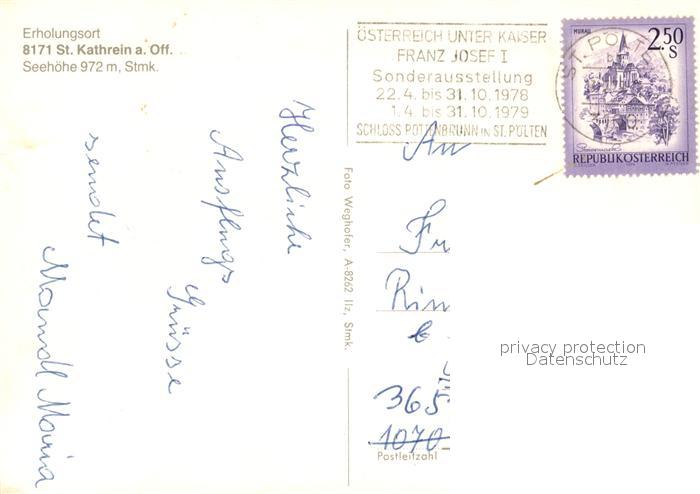 Erholungsort
8171 St. Kathrein a. Off.
Seehöhe 972 m, Stmk.
ÖSTERREICH UNTER KAISER
FRANZ JOSEF I
Sonderausstellung
22.4. bis 31.10.1978
1.4. bis 31.10.1979
SCHLOSS POTTENBRUNN IN ST. PÖLTEN
MURAU
2.50
S
ST. PÖLTEN
Steiermark
REPUBLIK ÖSTERREICH
Herzliche
Ausflugs
Grüsse
sendet
Mandl Maria
Foto Weghofer, A-8262 Ilz, Stmk.
An
Fr
Rin
365
1070
Postleitzahl
privacy protection
Datenschutz